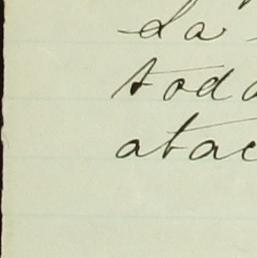 La
toda
atac